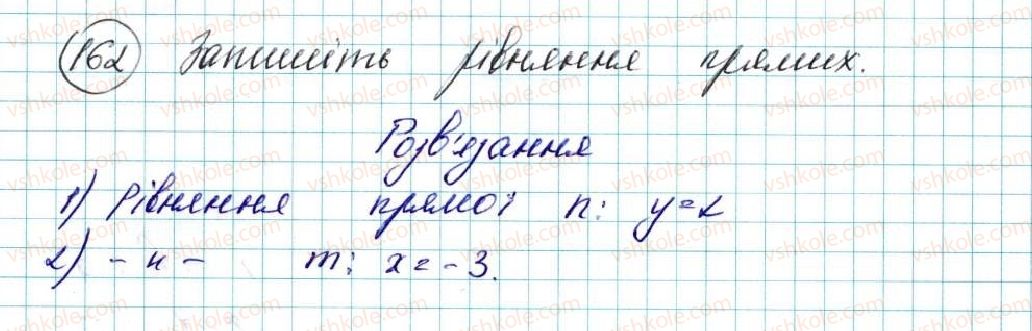 162 Запишіть рівняння прямих.
Розв'язання
1) Рівняння прямої n: y=2
2) - н - m: x = -3.